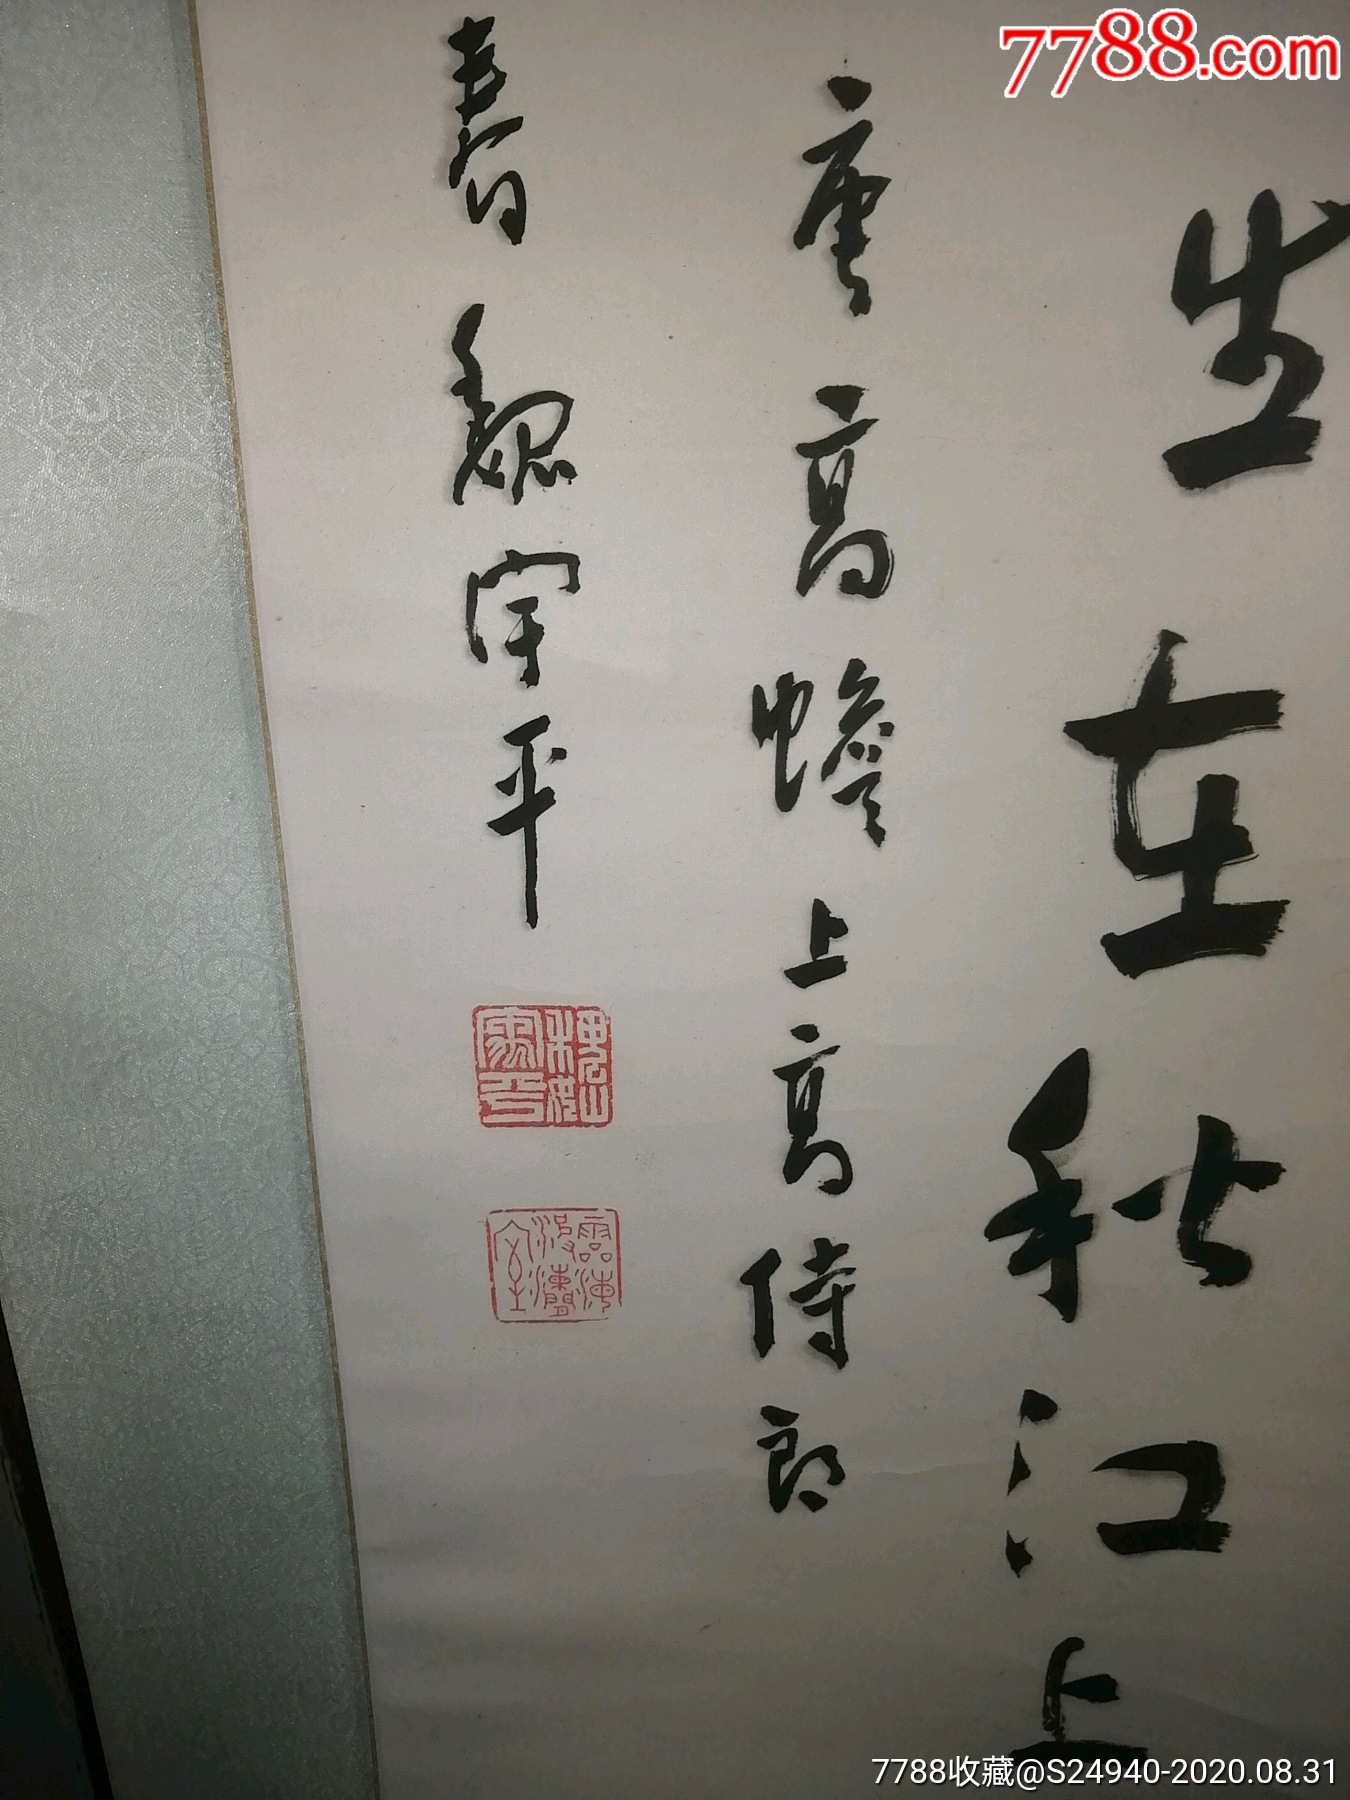 7788.com
生在秋江上
唐高蟾上高侍郎
春魏宇平
魏宇平
7788收藏@S24940-2020.08.31